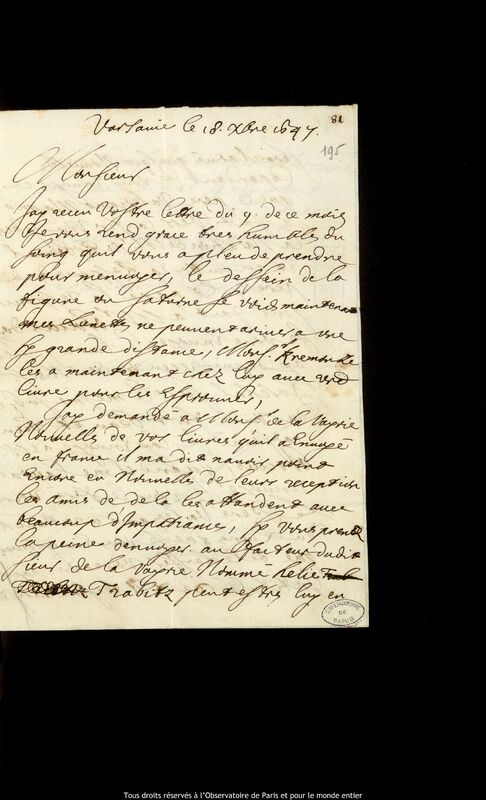 81
Varsavie le 18. Xbre 1647.
195
Monsieur
Jay receu Vostre lettre du 9. de ce mois
Je vous rend grace tres humbles du
soing quil vous a pleu de prendre
pour menvoyer, le dessein de la
figure ou Saturne se void maintenant
mes Lunette ne peuvent ariver a une
sy grande distance, Monsr.
les a maintenant chez luy avec vre
livre pour les Esprouver,
Jay demandé a Monsr. de la Vayrie
Nouvelle de vos livres quil a Envoyé
en france il ma dit navoir point
Encore eu Nouvelle de leurs reception
les amis de de la les attandent avec
beaucoup d'Impatiance, sy vous prenez
la peine denvoyer au facteur dudit
sieur de la Vayrie Nommé Helie
Trabitz peut estre luy en
L'OBSERVATOIRE DE PARIS
Tous droits réservés à l'Observatoire de Paris et pour le monde entier